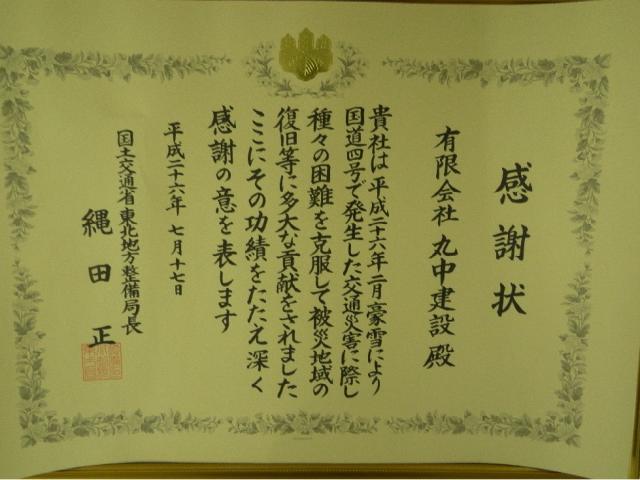 感謝状
有限会社 丸中建設 殿
貴社は平成二十六年二月豪雪により
国道四号で発生した交通災害に際し
種々の困難を克服して被災地域の
復旧等に多大な貢献をされました
ここにその功績をたたえ深く
感謝の意を表します
平成二十六年 七月十七日
国土交通省東北地方整備局長
縄田 正